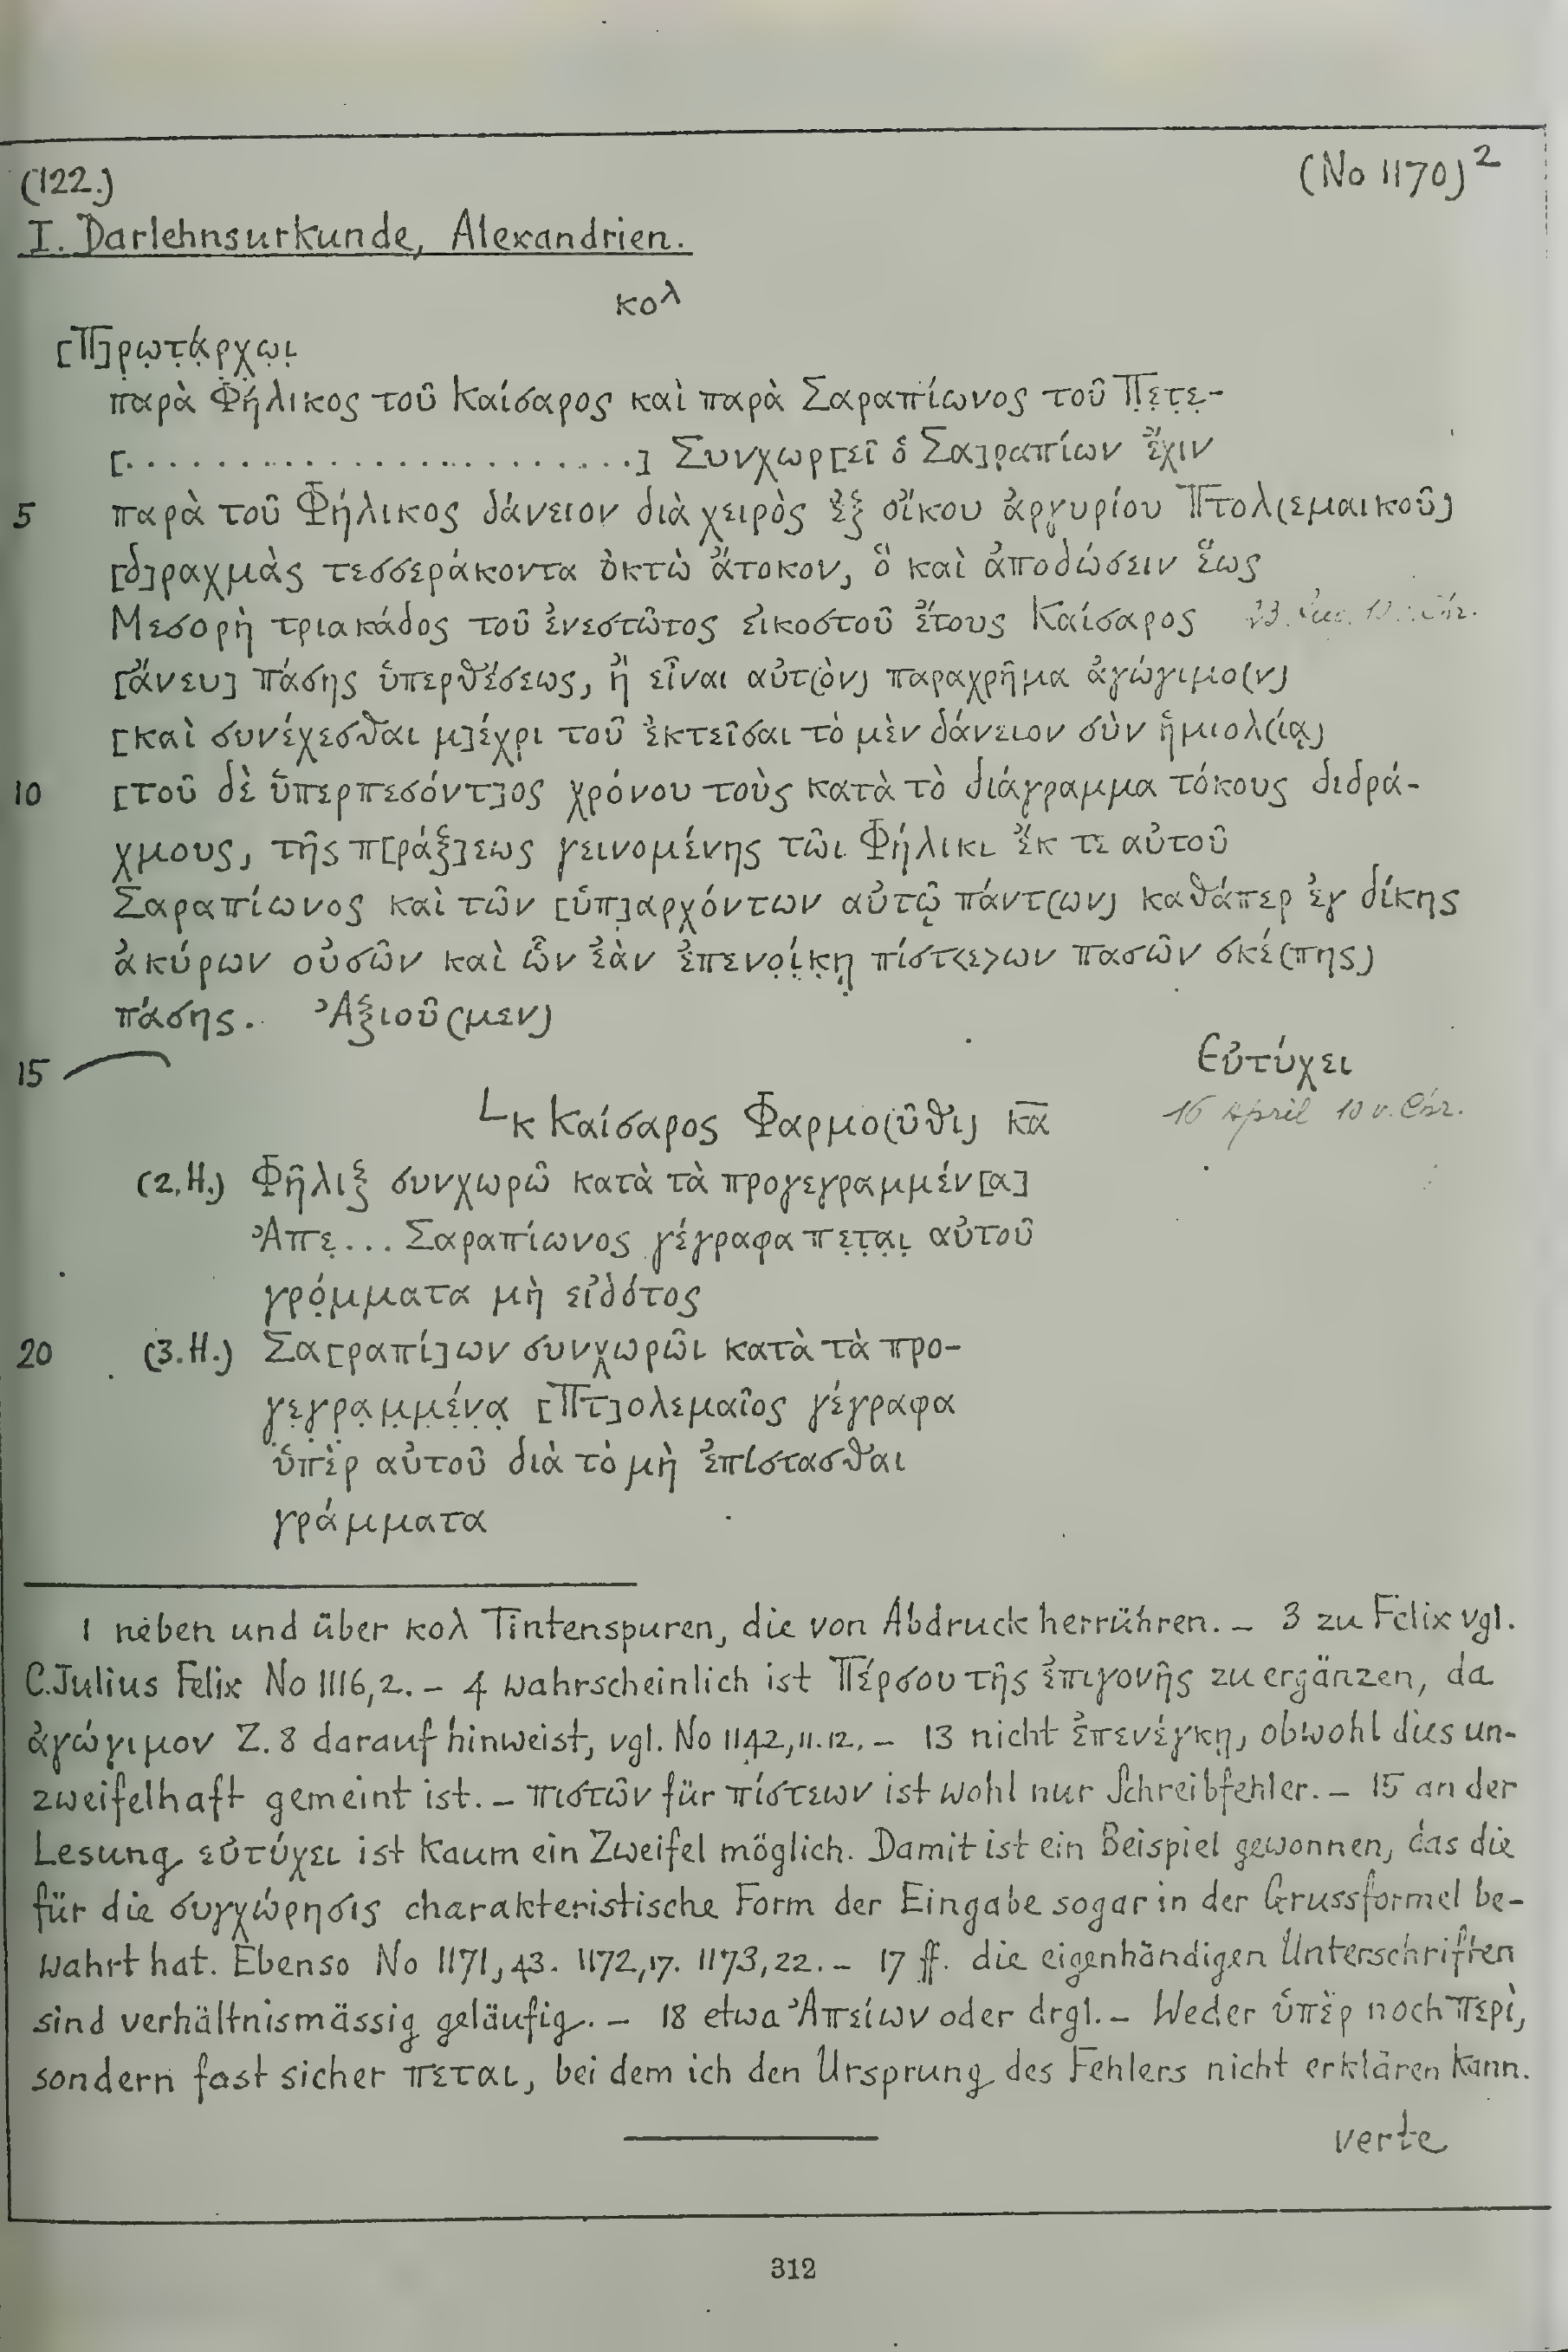 (122.) (No 1170)²
I. Darlehnsurkunde, Alexandrien.
κολ
[Π]ρ̣ω̣τ̣ά̣ρ̣χ̣ω̣ι̣
παρὰ Φή̣λικος τοῦ Καίσαρος καὶ παρὰ Σαραπίωνος τοῦ Π̣ε̣τ̣ε̣-
[. . . . . . . . . . . . . . . . . . . . . . . .] Συνχωρ[εῖ ὁ Σα]ραπίων ἔχιν
5 παρὰ τοῦ Φήλικος δάνειον διὰ χειρὸς ἐξ οἴκου ἀργυρίου Πτολ(εμαικοῦ)
[δ]ραχμὰς τεσσεράκοντα ὀκτὼ ἄτοκον, ὃ καὶ ἀποδώσειν ἕως
Μεσορὴ τριακάδος τοῦ ἐνεστῶτος εἰκοστοῦ ἔτους Καίσαρος 23.
[ἄνευ] πάσης ὑπερθέσεως, ἢ εἶναι αὐτ(ὸν) παραχρῆμα ἀγώγιμο(ν)
[καὶ συνέχεσθαι μ]έχρι τοῦ ἐκτεῖσαι τὸ μὲν δάνειον σὺν ἡμιολ(ίᾳ)
10 [τοῦ δὲ ὑπερπεσόντ]ος χρόνου τοὺς κατὰ τὸ διάγραμμα τόκους διδρά-
χμους, τῆς π[ράξ]εως γεινομένης τῶι Φήλικι ἔκ τε αὐτοῦ
Σαραπίωνος καὶ τῶν [ὑπ]αρχόντων αὐτῷ πάντ(ων) καθάπερ ἐγ δίκης
ἀκύρων οὐσῶν καὶ ὧν ἐὰν ἐπενο̣ί̣κ̣ῃ̣ πίστ<ε>ων πασῶν σκέ(πης)
πάσης. Ἀξιοῦ(μεν)
15 Εὐτύχει
└κ Καίσαρος Φαρμο(ῦθι) κ̅α̅ 16 April 10 v. Chr.
(2. H.) Φῆλιξ συνχωρῶ κατὰ τὰ προγεγραμμέν[α]
Ἀπε̣... Σαραπίωνος γέγραφα πε̣τ̣α̣ι̣ αὐτοῦ
γρά̣μματα μὴ εἰδότος
20 (3. H.) Σα[ραπί]ων συνχωρῶι κατὰ τὰ προ-
γε̣γ̣ρ̣α̣μ̣μ̣έ̣ν̣α̣ [Πτ]ολεμαῖος γέγραφα
ὑπὲρ αὐτοῦ διὰ τὸ μὴ ἐπίστασθαι
γράμματα
1 neben und über κολ Tintenspuren, die von Abdruck herrühren. – 3 zu Felix vgl.
C. Julius Felix No 1116,2. – 4 wahrscheinlich ist Πέρσου τῆς ἐπιγονῆς zu ergänzen, da
ἀγώγιμον Z. 8 darauf hinweist, vgl. No 1142, 11.12. – 13 nicht ἐπενέγκῃ, obwohl dies un-
zweifelhaft gemeint ist. – πιστῶν für πίστεων ist wohl nur Schreibfehler. – 15 an der
Lesung εὐτύχει ist kaum ein Zweifel möglich. Damit ist ein Beispiel gewonnen, das die
für die συγχώρησις charakteristische Form der Eingabe sogar in der Grussformel be-
wahrt hat. Ebenso No 1171,43. 1172,17. 1173,22. – 17 ff. die eigenhändigen Unterschriften
sind verhältnismässig geläufig. – 18 etwa Ἀπείων oder drgl. – Weder ὑπὲρ noch περὶ,
sondern fast sicher πεται, bei dem ich den Ursprung des Fehlers nicht erklären kann.
verte
312